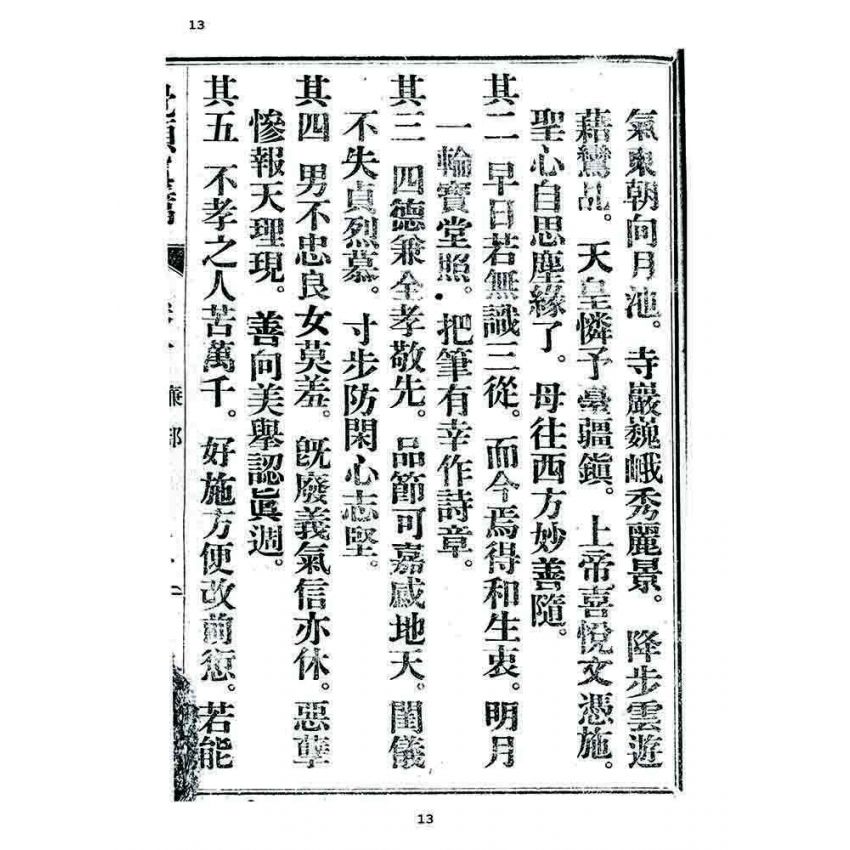 13
氣東朝向月池。寺巖巍峨秀麗景。降步雲遊
藉鸞乩。天皇憐予臺疆鎮。上帝喜悅文憑施。
聖心自思塵緣了。母往西方妙善隨。
其二 早日若無識三從。而今焉得和生衷。明月
一輪寶堂照。把筆有幸作詩章。
其三 四德兼全孝敬先。品節可嘉感地天。閨儀
不失貞烈慕。寸步防閑心志堅。
其四 男不忠良女莫羞。既廢義氣信亦休。惡孽
慘報天理現。善向美舉認眞週。
其五 不孝之人苦萬千。好施方便改前愆。若能
部
13